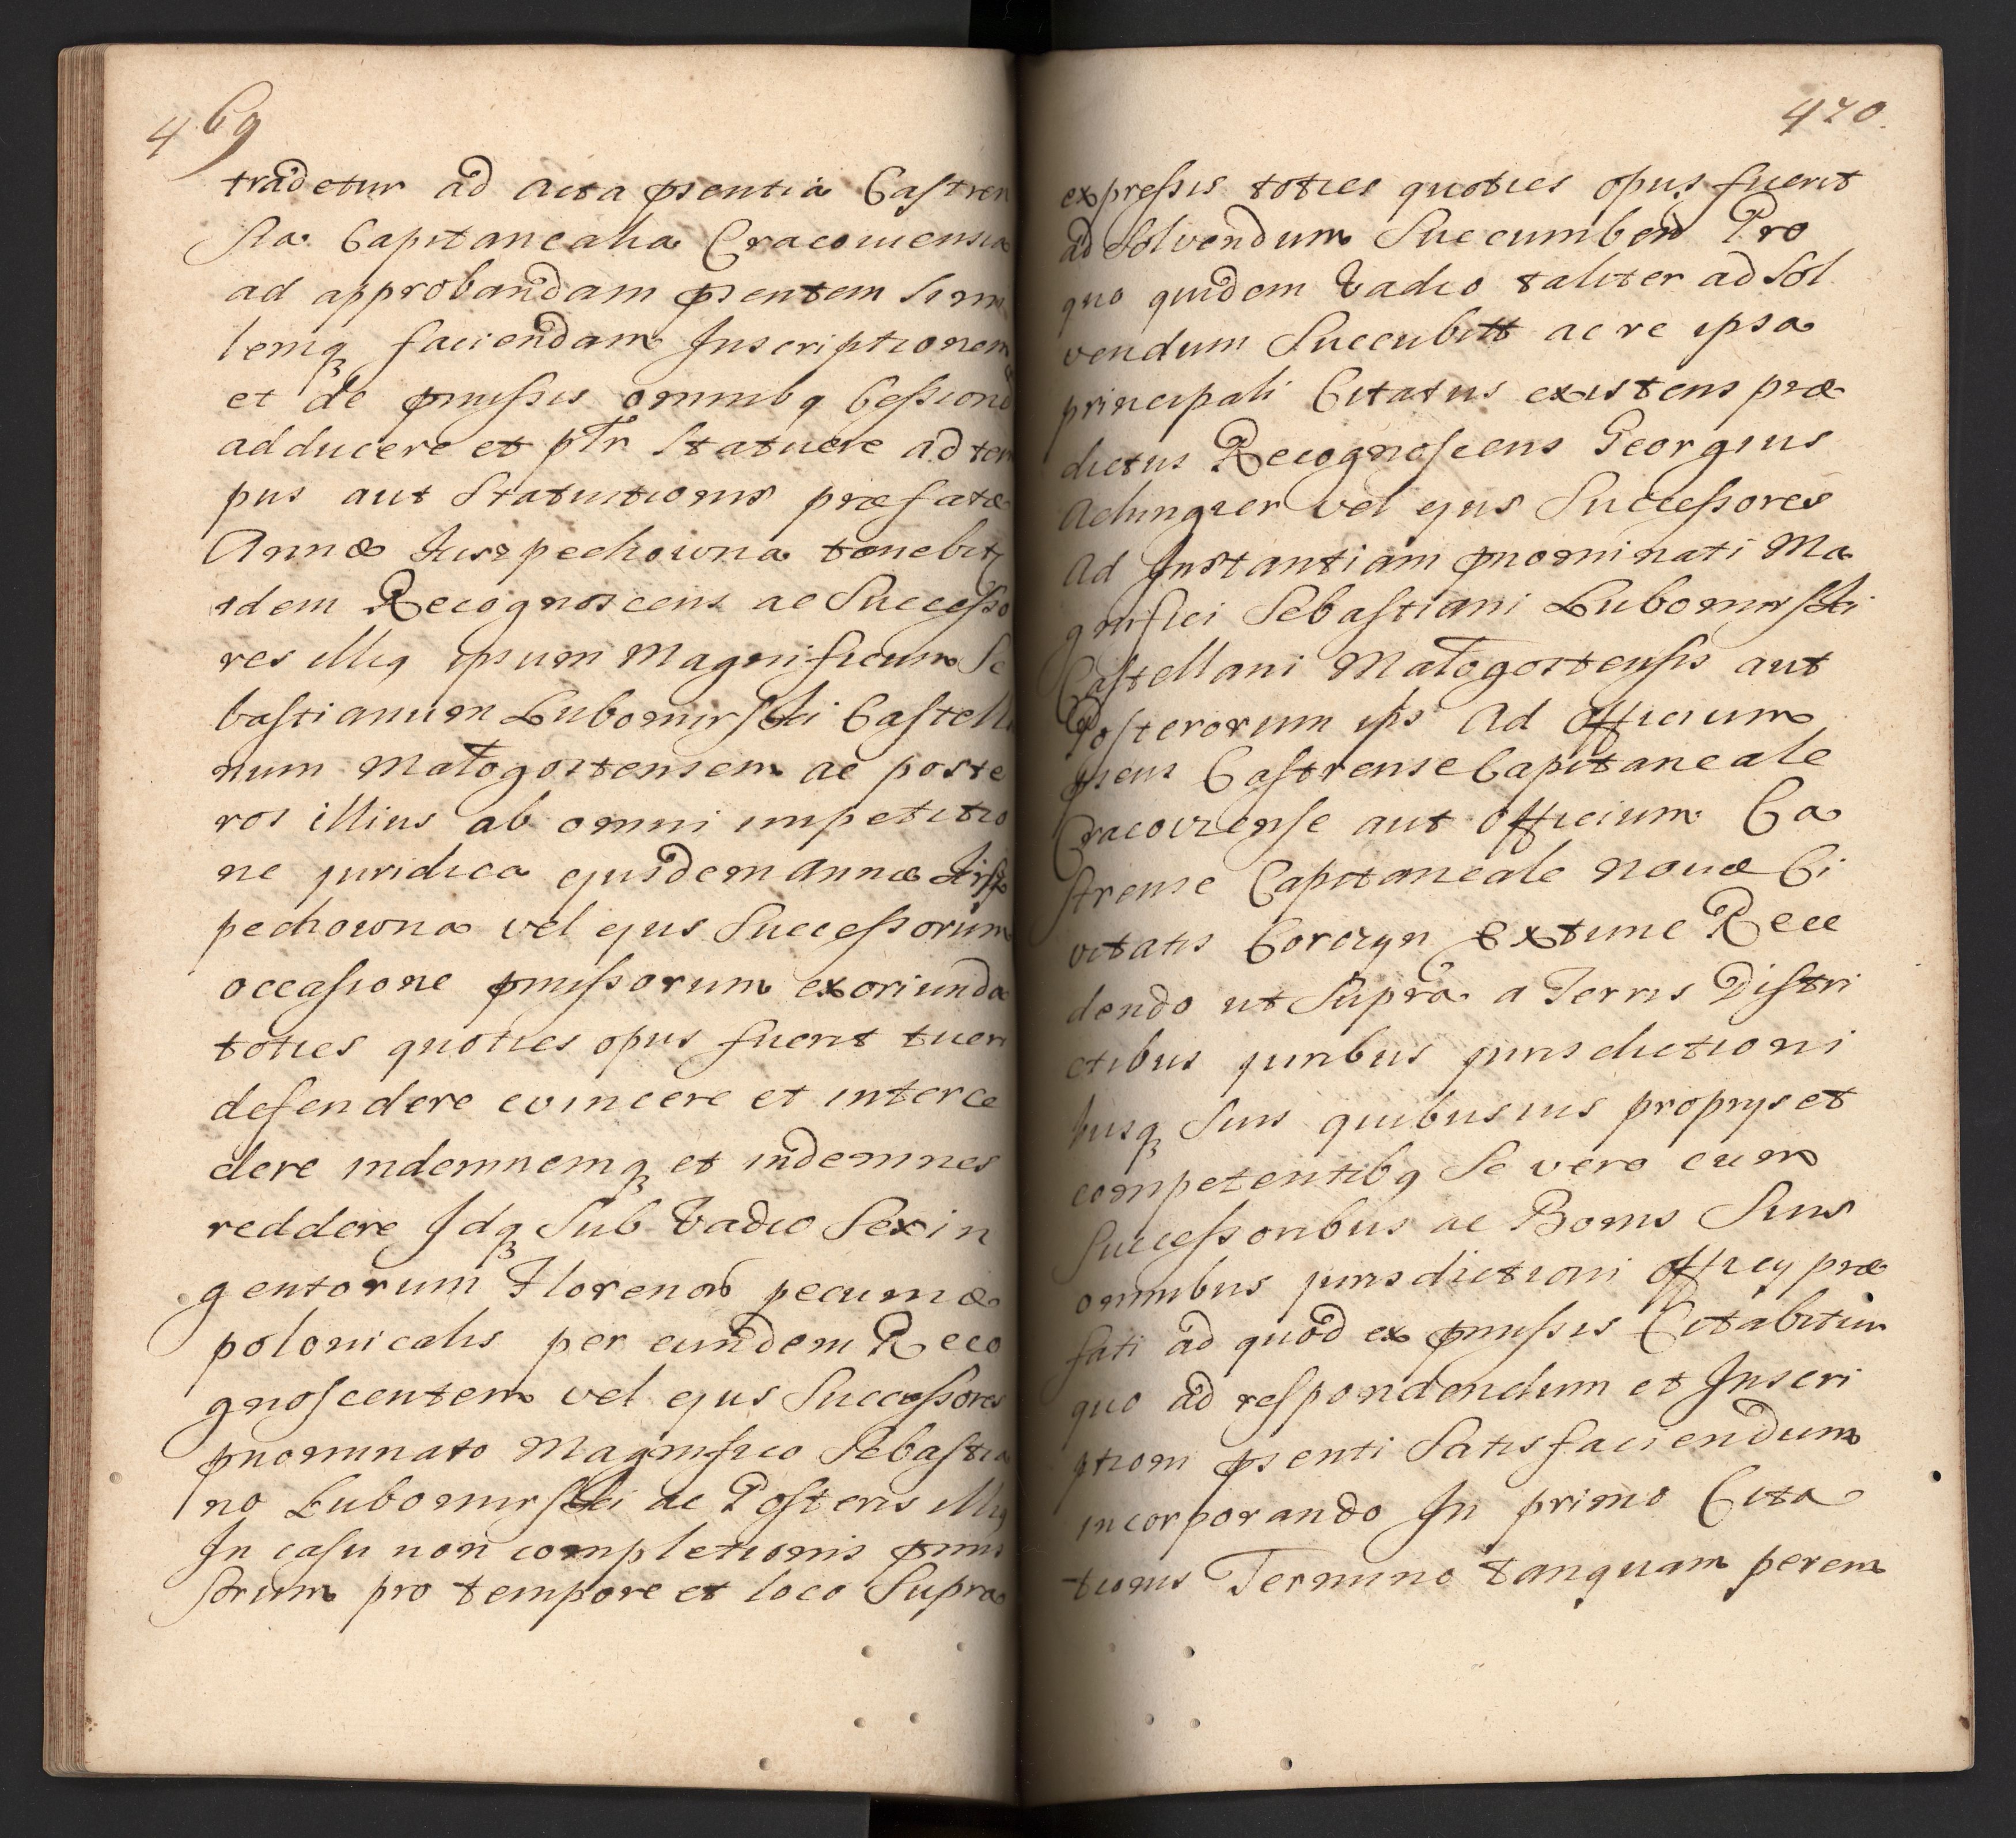 469
tradetur ad acta psentia Castren
sia Capitanealia Cracoviensia
ad approbandam psentem simi
lemq faciendam Inscriptionem
et de pmissis omnibq Cessione
adducere et ptr Statuere ad tem
pus aut Statuitionis præfatæ
Annæ Iiszpechowna tenebit
idem Recognoscens ac Successo
res illiq ipsum Magnificum Se
bastianum Lubomirski Castella
num Małogostensem ac poste
ros illius ab omni impetitio
ne juridica ejusdem Annæ Iisz
pechowna vel ejus Successorum
occasione pmissorum exoriunda
toties quoties opus fuerit tueri
defendere evincere et interce
dere indemnemq et indemnes
reddere Idq Sub Vadio Sexin
gentorum Florenor pecuniæ
polonicalis per eundem Reco
gnoscentem vel ejus Successores
pnominato Magnifico Sebastia
no Lubomirski ac Posteris illiq
In casu non completionis pmis
sorum pro tempore et loco Supra
470.
expressis toties quoties opus fuerit
ad Solvendum Succumbend Pro
quo quidem Vadio taliter ad Sol
vendum Succubitt ac re ipsa
principali Citatus existens præ
dictus Recognoscens Georgius
Achingier vel ejus Successores
Ad Instantiam pnominati Ma
gnifici Sebastiani Lubomirski
Castellani Małogostensis aut
Posterorum ips Ad Officium
psens Castrense Capitaneale
Cracoviense aut Officium Ca
strense Capitaneale Novæ Ci
vitatis Corczyn Extunc Rece
dendo ut Supra a Terris Distri
ctibus juribus jurisdictioni
busq Suis quibusvis proprys et
competentibq Se vero cum
Successoribus ac Bonis Suis
omnibus jurisdictioni Officy præ
fati ad quod ex pmissis Citabitur
quo ad respondendum et Inscri
ptioni psenti Satisfaciendum
incorporando In primo Cita
tionis Termino tanquam perem